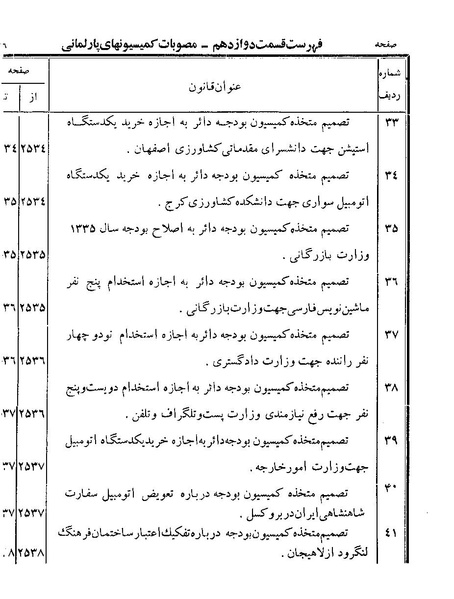 صفحه فهرست قسمت دوازدهم – مصوبات کمیسیونهای پارلمانی ٦
شماره ردیف عنوان قانون صفحه
از ت
٣٣ تصمیم متخذه کمیسیون بودجه دائر به اجازه خرید یکدستگاه
استیشن جهت دانشسرای مقدماتی کشاورزی اصفهان . ٢٥٣٤ ٣٤
٣٤ تصمیم متخذه کمیسیون بودجه دائر به اجازه خرید یکدستگاه
اتومبیل سواری جهت دانشکده کشاورزی کرج . ٢٥٣٤ ٣٥
٣٥ تصمیم متخذه کمیسیون بودجه دائر به اصلاح بودجه سال ١٣٣٥
وزارت بازرگانی . ٢٥٣٥ ٣٥
٣٦ تصمیم متخذه کمیسیون بودجه دائر به اجازه استخدام پنج نفر
ماشین نویس فارسی جهت وزارت بازرگانی . ٢٥٣٥ ٣٦
٣٧ تصمیم متخذه کمیسیون بودجه دائر به اجازه استخدام نودو چهار
نفر راننده جهت وزارت دادگستری . ٢٥٣٦ ٣٦
٣٨ تصمیم متخذه کمیسیون بودجه دائر به اجازه استخدام دویست و پنج
نفر جهت رفع نیازمندی وزارت پست و تلگراف و تلفن . ٢٥٣٦ ٣٧
٣٩ تصمیم متخذه کمیسیون بودجه دائر به اجازه خرید یکدستگاه اتومبیل
جهت وزارت امور خارجه . ٢٥٣٧ ٣٧
٤٠ تصمیم متخذه کمیسیون بودجه درباره تعویض اتومبیل سفارت
شاهنشاهی ایران در بروکسل . ٢٥٣٧ ٣٧
٤١ تصمیم متخذه کمیسیون بودجه درباره تفکیک اعتبار ساختمان فرهنگ
لنگرود از لاهیجان . ٢٥٣٨ ٨